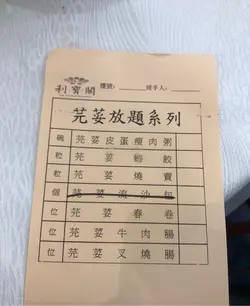 利寶閣 檯號:____ 經手人:____
芫荽放題系列
碗 芫荽皮蛋瘦肉粥
粒 芫荽蝦餃
粒 芫荽燒賣
個 芫荽流沙包
位 芫荽春卷
位 芫荽牛肉腸
位 芫荽叉燒腸